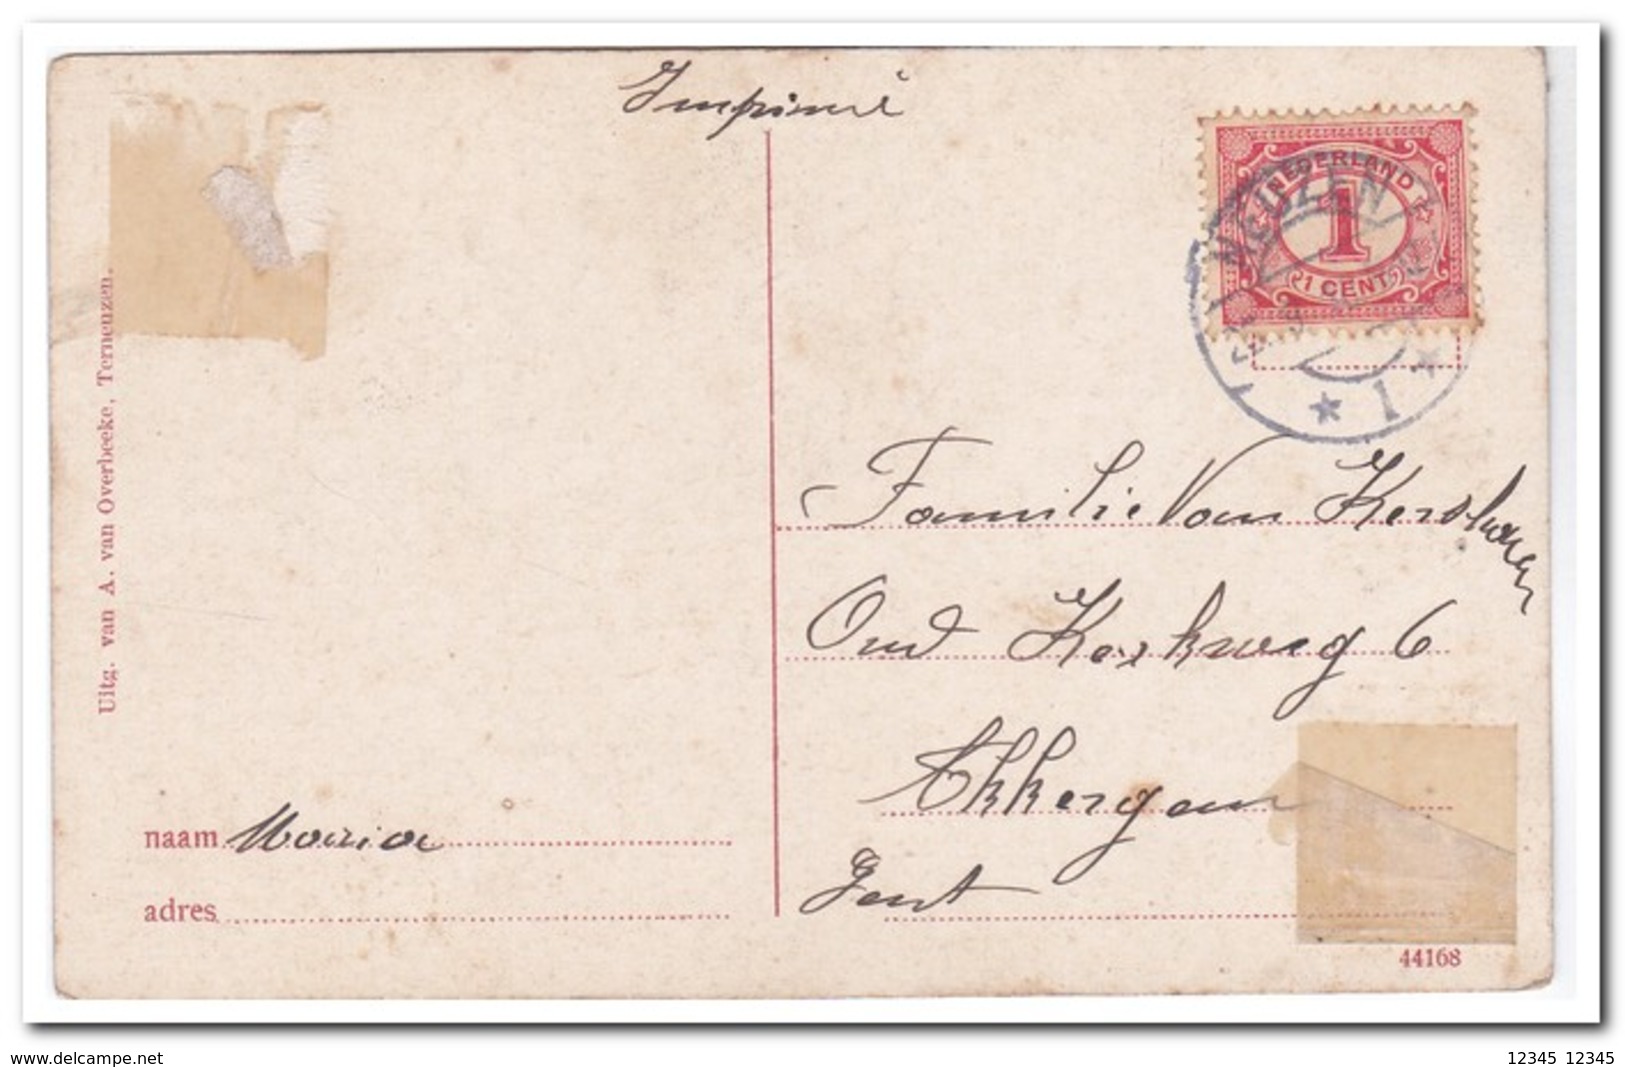 Imprimé
NEDERLAND
1
1 CENT
NEUZEN
* 1 *
Uitg. van A. van Overbeeke, Terneuzen.
Familie Van
Oud Kerkweg 6
Ekkergem
Gent
naam Maria
adres
44168
www.delcampe.net
12345 12345